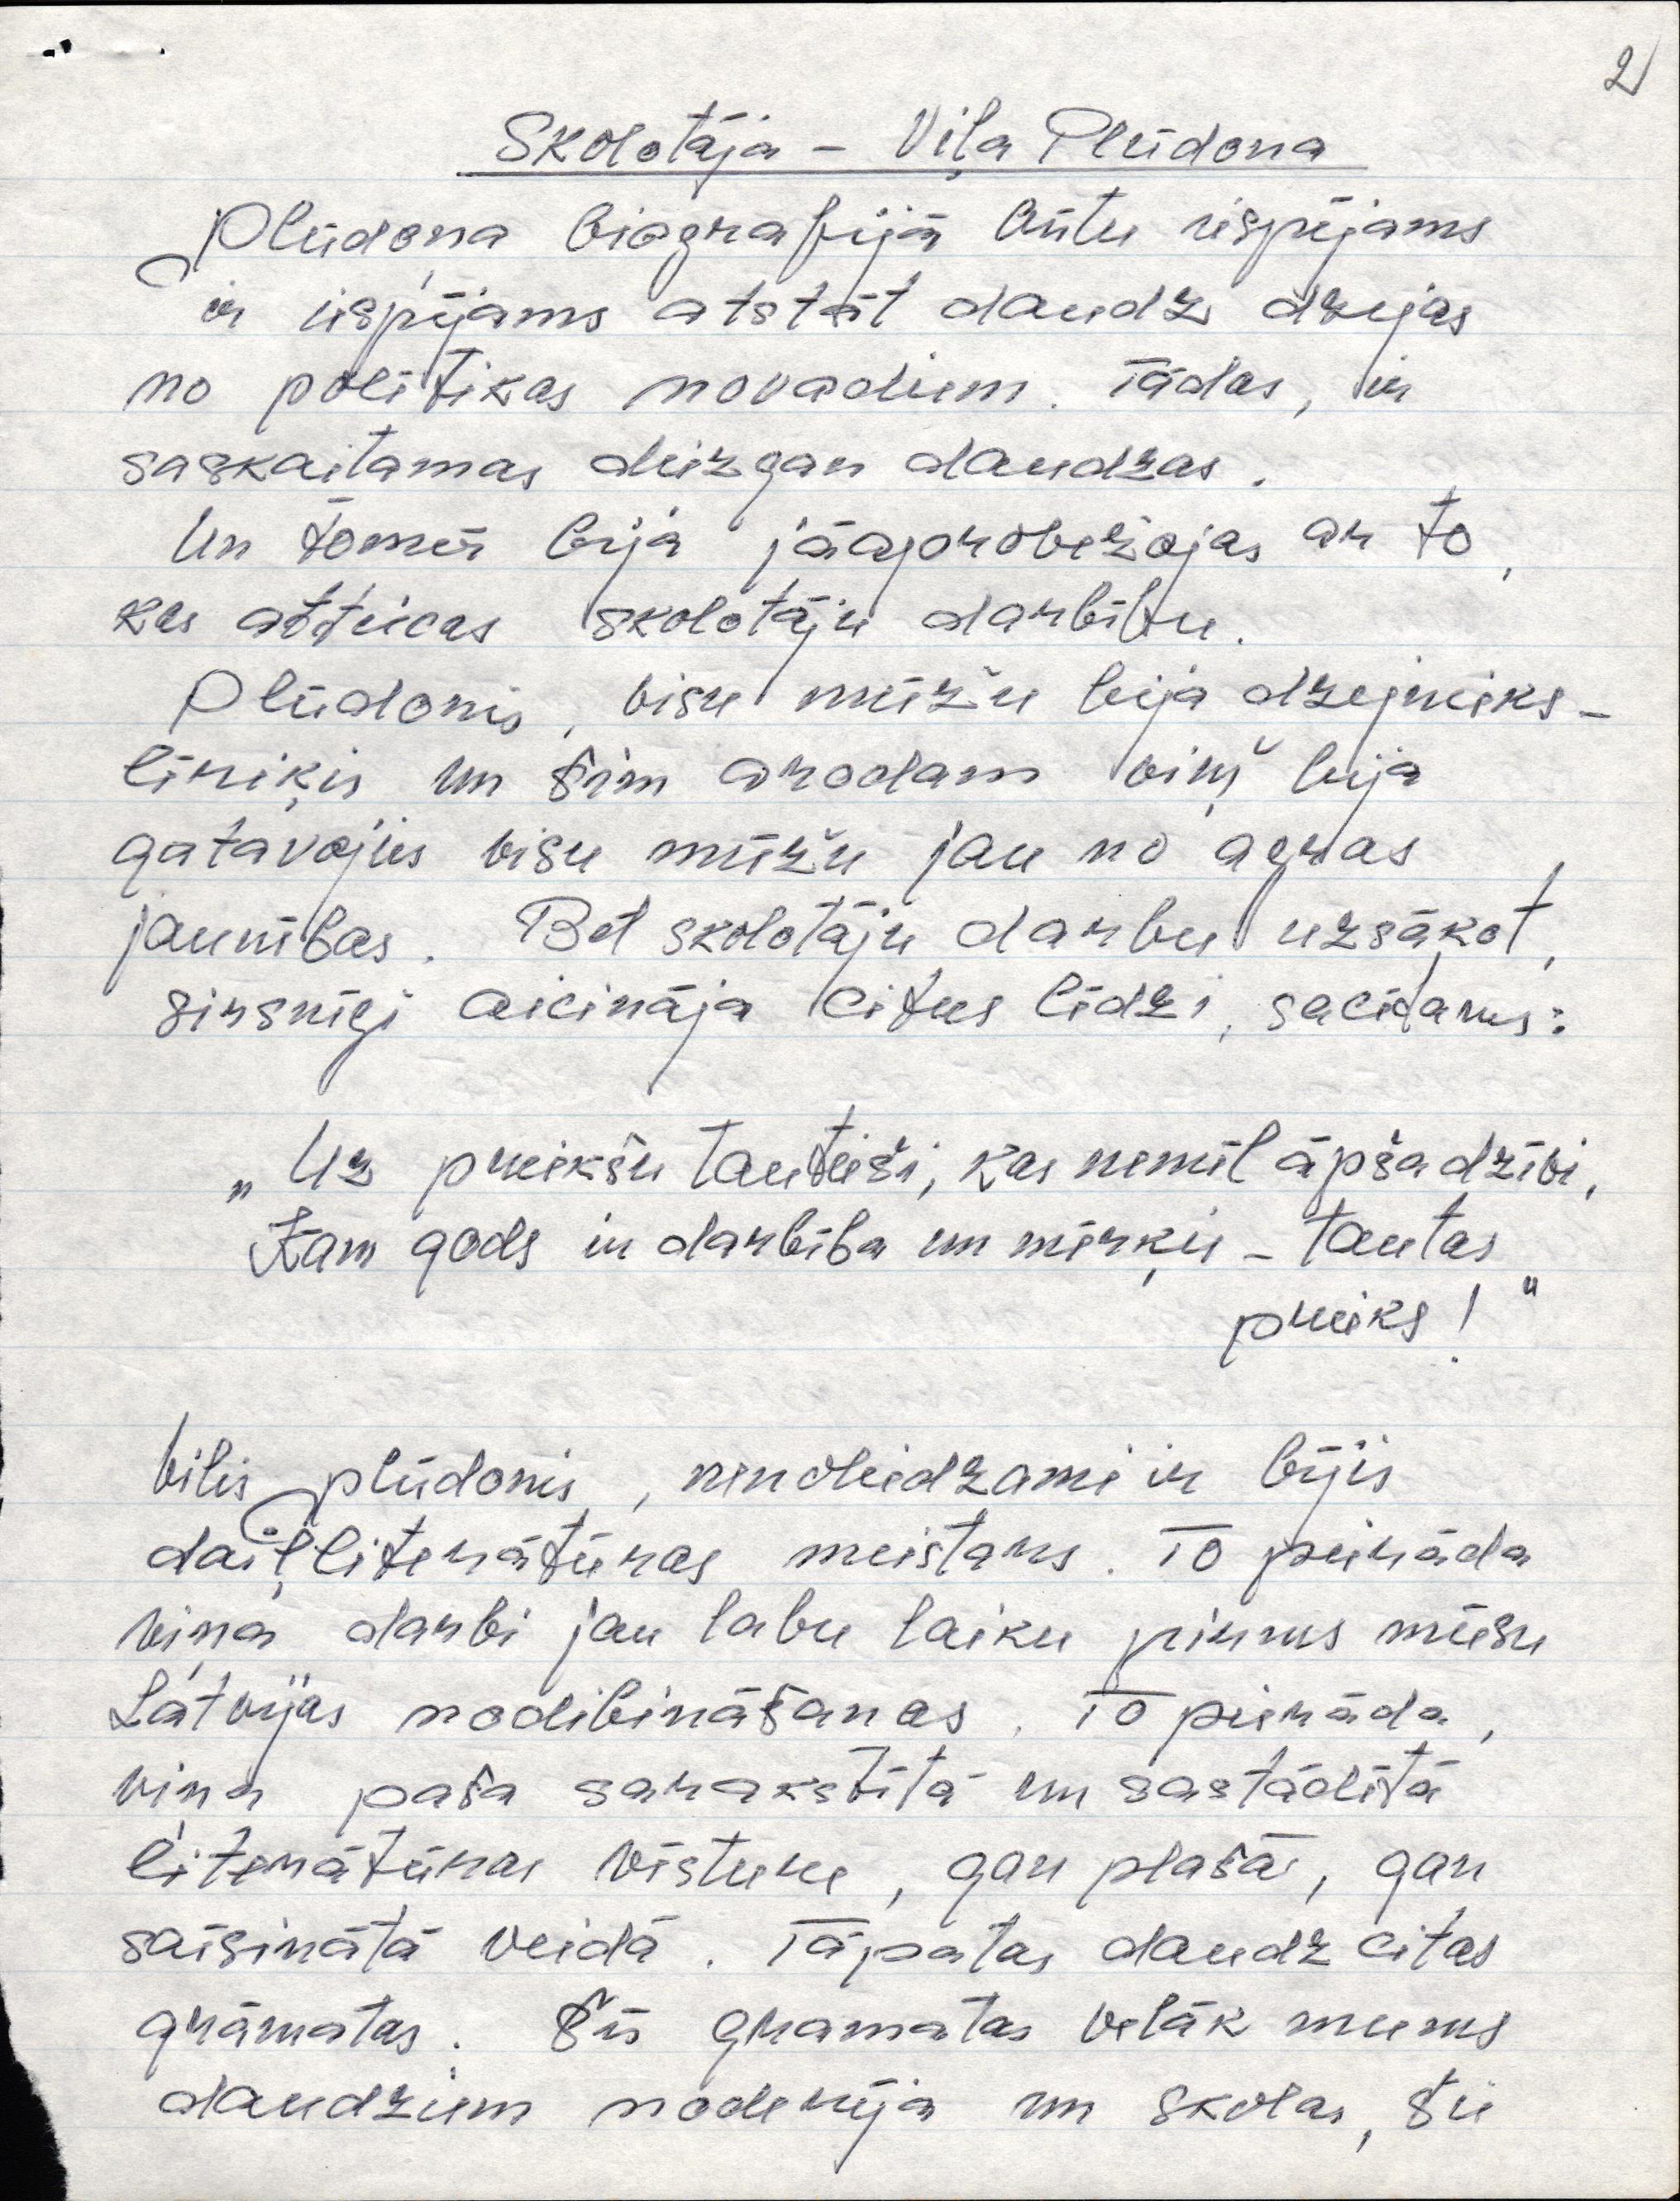 2
Skolotāja – Viļa Plūdona
Plūdoņa biografijā būtu iespējams
ir iespējams atstāt daudz dzejas
no politikas novadiem. Tādas, ir
saskaitamas diezgan daudzas.
Un tomēr bija jāaprobežojas ar to,
kas attiecas skolotāju darbību.
Plūdonis, visu mūžu bija dzejnieks –
liriķis un šim arodam viņš bija
gatavojies visu mūžu jau no agras
jaunības. Bet skolotāju darbu uzsākot,
sirsnīgi aicināja citus līdzi, sacīdams:
„Uz priekšu tautieši, kas nemīl āpša dzīvi,
Kam gods ir darbība un mērķis – tautas
prieks!"
Vilis plūdonis, nenoliedzami ir bijis
daiļliterātūras meistars. To pierāda
viņa darbi jau labu laiku pirms mūsu
Latvijas nodibināšanas. To pierāda,
viņa paša sarakstītā un sastādītā
literātūras vēsture, gan plašā, gan
saīsinātā veidā. Tāpatas daudz citas
grāmatas. Šīs gramatas vēlāk mums
daudziem noderēja un skolas, šie